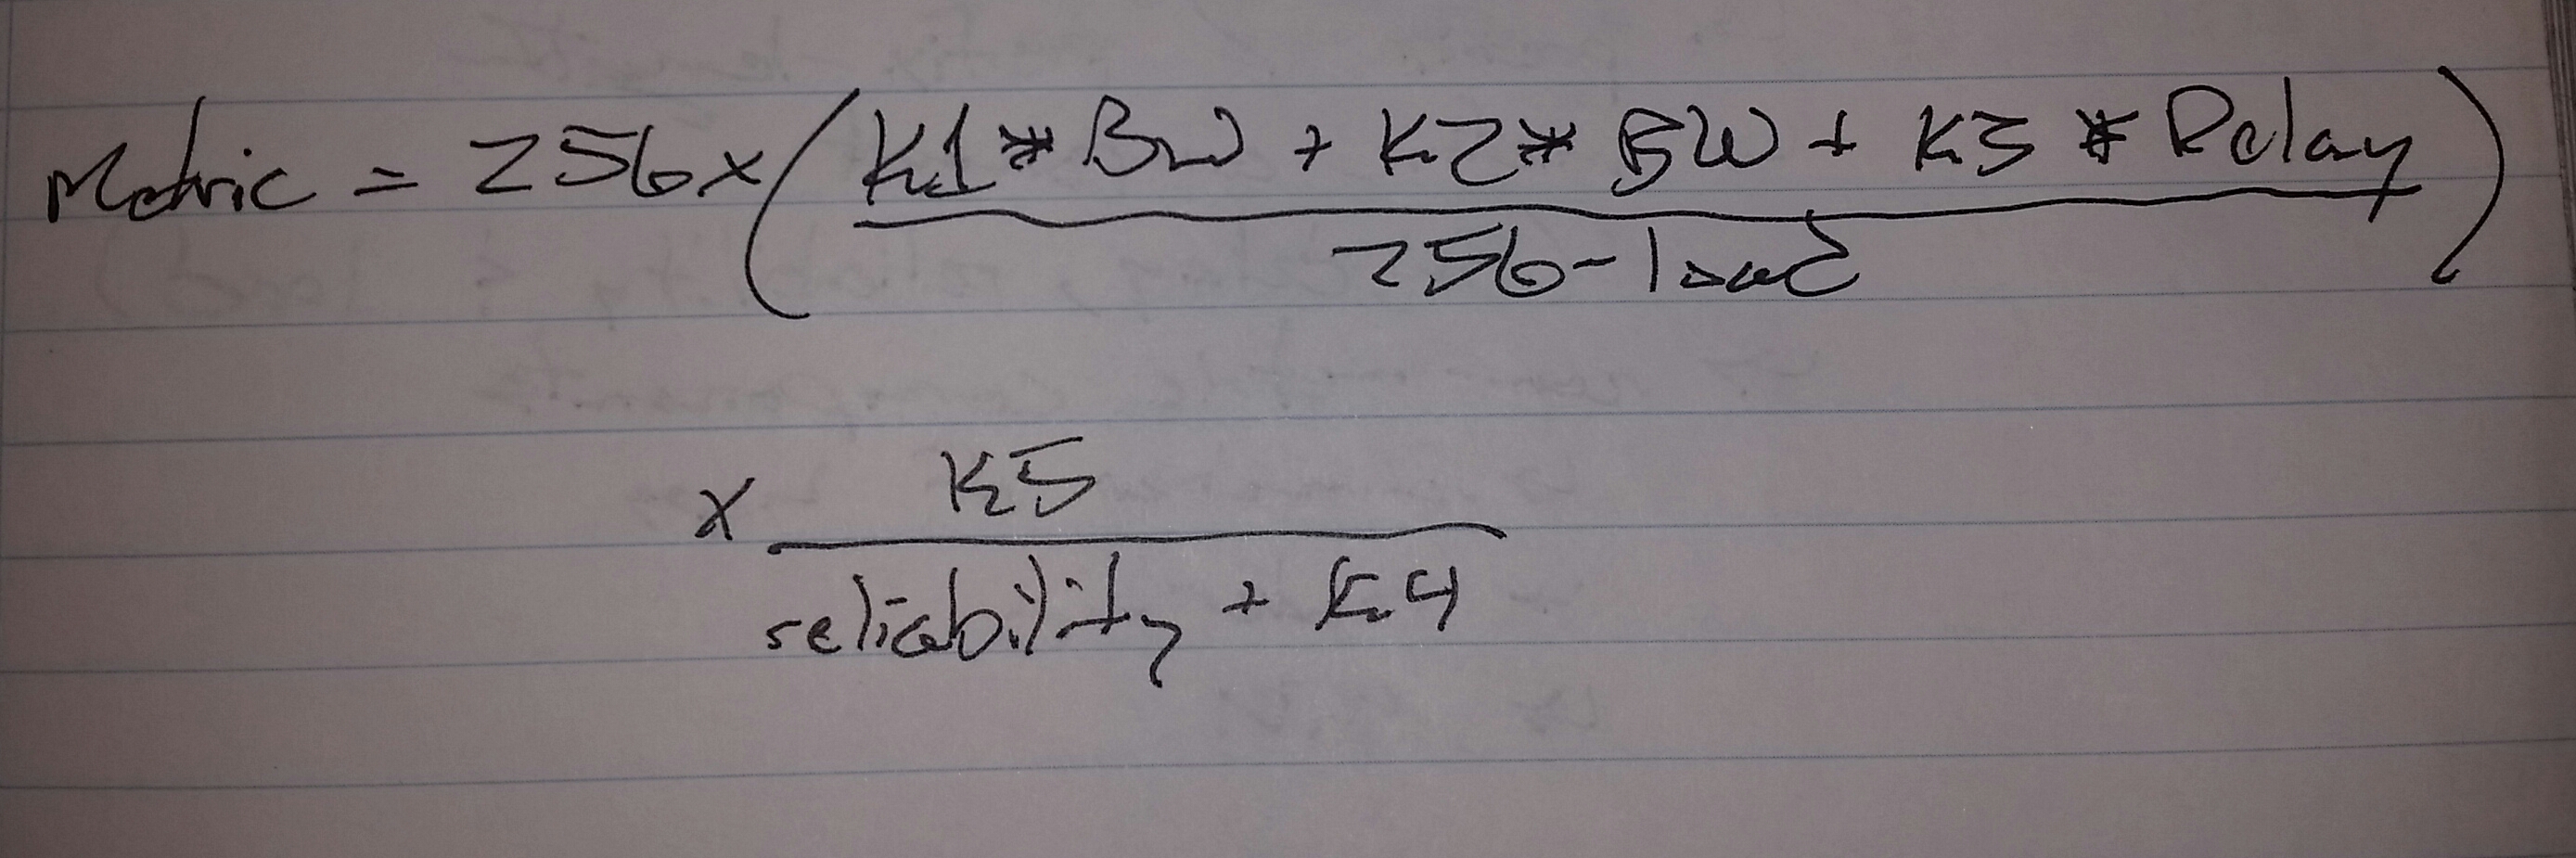 Metric = 256 x ( K1 * BW + K2 * BW + K3 * Delay )
256 - load
x K5
reliability + K4